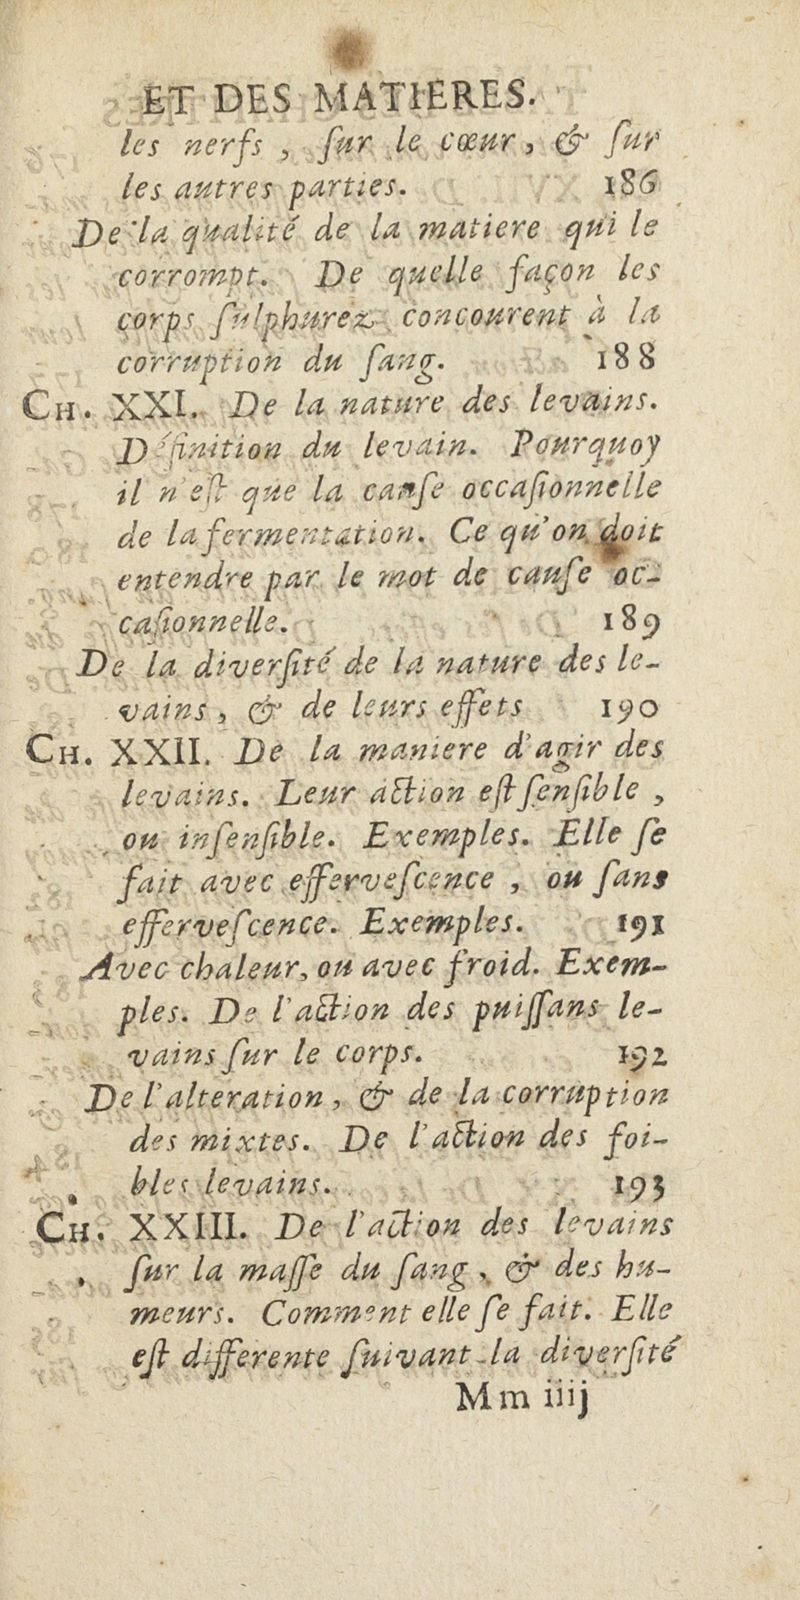 ET DES MATIERES.
les nerfs, ſur le cœur, & ſur
les autres parties. 186
De la qualité de la matiere qui le
corrompt. De quelle façon les
corps ſulphurez concourent à la
corruption du ſang. 188
CH. XXI. De la nature des levains.
Définition du levain. Pourquoy
il n'eſt que la cauſe occaſionnelle
de la fermentation. Ce qu'on doit
entendre par le mot de cauſe oc-
caſionnelle. 189
De la diverſité de la nature des le-
vains, & de leurs effets 190
CH. XXII. De la maniere d'agir des
levains. Leur action eſt ſenſible,
ou inſenſible. Exemples. Elle ſe
fait avec efferveſcence, ou ſans
efferveſcence. Exemples. 191
Avec chaleur, ou avec froid. Exem-
ples. De l'action des puiſſans le-
vains ſur le corps. 192
De l'alteration, & de la corruption
des mixtes. De l'action des foi-
bles levains. 193
CH. XXIII. De l'action des levains
ſur la maſſe du ſang, & des hu-
meurs. Comment elle ſe fait. Elle
eſt differente ſuivant la diverſité
Mm iiij